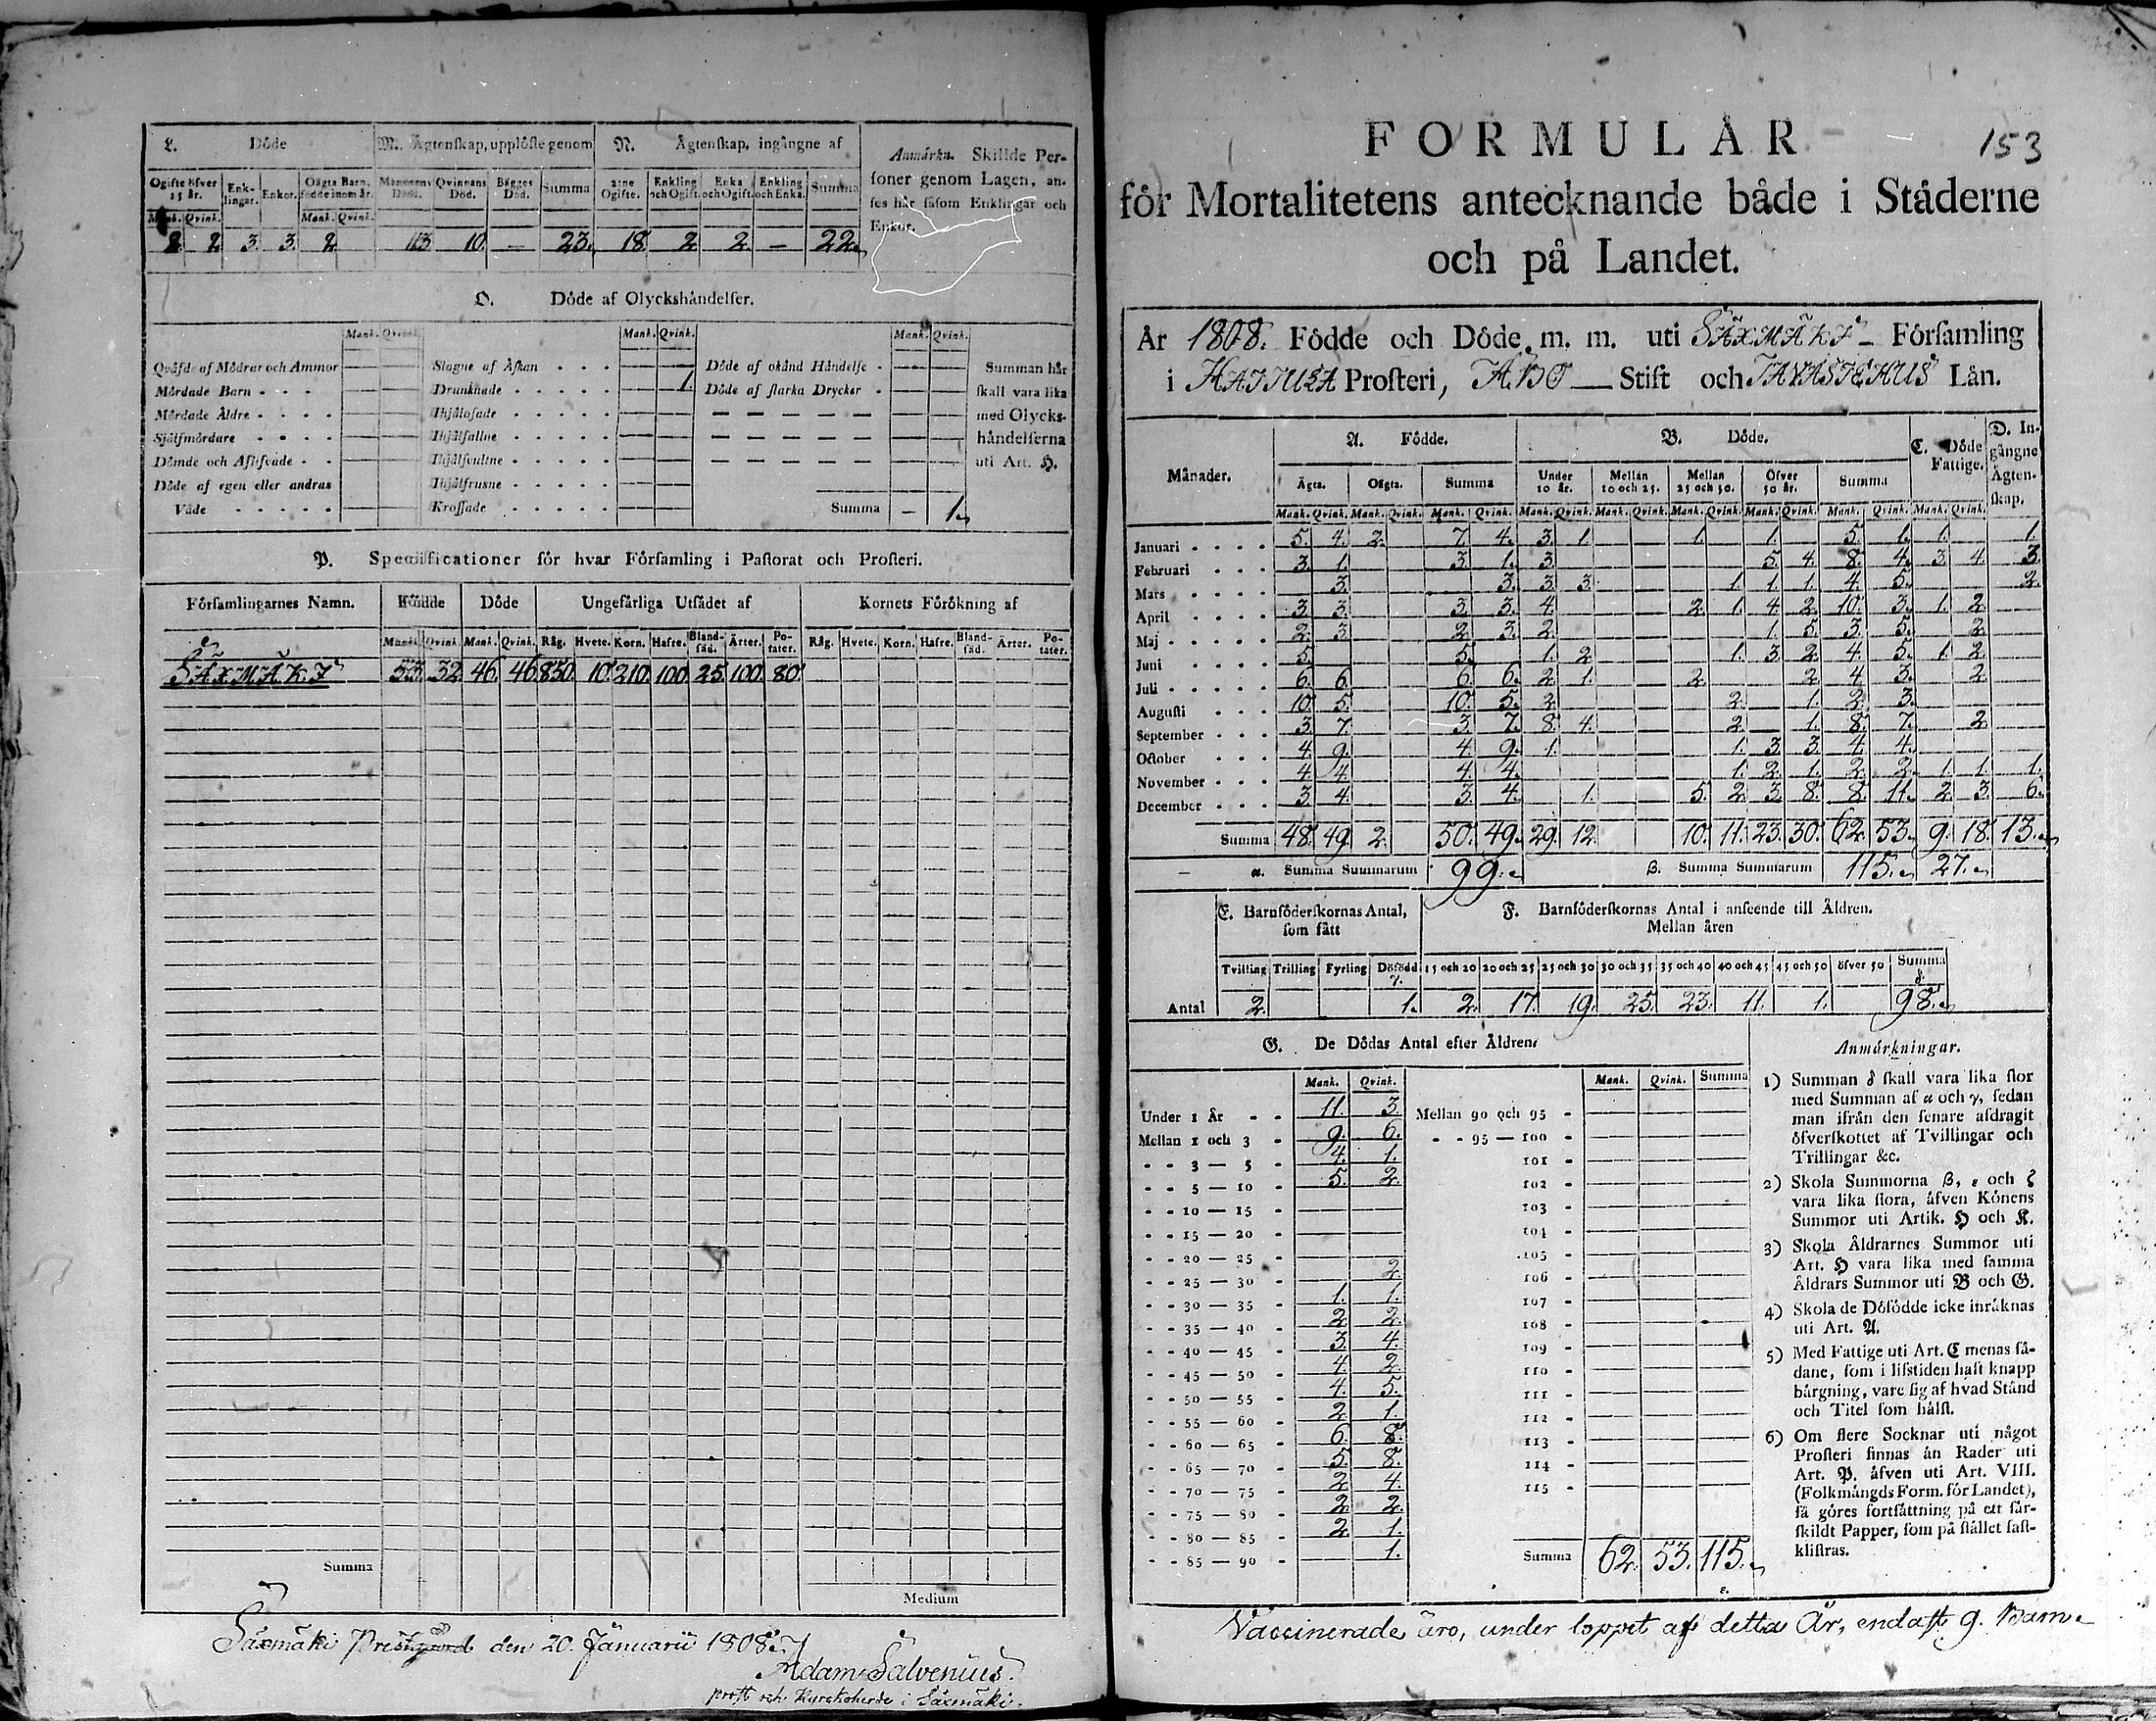 L. Döde
M. Ägtenskap, upplöste genom
N. Ägtenskap, ingångne af
Anmärkn. Skillde Per-
soner genom Lagen, an-
ses här såsom Enklingar och
Enkor.
Ogifte öfver 15 år. Enk-lingar. Enkor. Oägta Barn, födde inom år. Mannens Död. Qvinnans Död. Bägges Död. Summa 2:ne Ogifte. Enkling och Ogift. Enka och Ogift. Enkling och Enka. Summa
Mank. Qvink. Mank. Qvink.
2. 2. 3. 3. 2 13 10. — 23. 18. 2. 2. — 22.
O. Döde af Olyckshändelser.
Mank. Qvink. Mank. Qvink. Mank. Qvink.
Qväfde af Mödrar och Ammor Slagne af Åskan . . . Döde af okänd Händelse . Summan här
Mördade Barn . . . Drunknade . . . . . 1. Döde af starka Drycker . skall vara lika
Mördade Äldre . . . . Ihjälosade . . . . . med Olycks-
Sjelfmördare . . . . Ihjälfallne . . . . . händelserna
Dömde och Aflifvade . . Ihjälsvultne . . . . . uti Art. H.
Döde af egen eller andras Ihjälfrusne . . . . .
Våde . . . . . Krossade . . . . . Summa — 1.
P. Specificationer för hvar Församling i Pastorat och Prosteri.
Församlingarnes Namn. Födde Döde Ungefärliga Utsädet af Kornets Förökning af
Mank. Qvink. Mank. Qvink. Råg. Hvete. Korn. Hafre. Bland-säd. Ärter. Po-tater. Råg. Hvete. Korn. Hafre. Bland-säd. Ärter. Po-tater.
SÄXMÄKI 53. 32. 46. 46. 850. 10. 210. 100. 25. 100. 80.
Summa
Medium
Säxmäki Prestgård den 20. Januarii 1808.
Adam Salvenius.
Prost och Kyrckoherde i Säxmäki.
FORMULÄR
153
för Mortalitetens antecknande både i Städerne
och på Landet.
År 1808. Födde och Döde m. m. uti SÄXMÄKI Församling
i HATTULA Prosteri, ÅBO Stift och TAVASTEHUS Län.
Månader. A. Födde. B. Döde. C. Döde Fattige. D. In-gångne Ägten-skap.
Ägta. Oägta. Summa Under 10 år. Mellan 10 och 25. Mellan 25 och 50. Öfver 50 år. Summa
Mank. Qvink. Mank. Qvink. Mank. Qvink. Mank. Qvink. Mank. Qvink. Mank. Qvink. Mank. Qvink. Mank. Qvink. Mank. Qvink.
Januari . . . . 5. 4. 2. 7. 4. 3. 1. 1. 1. 5. 1. 1. 1.
Februari . . . 3. 1. 3. 1. 3. 5. 4. 8. 4. 3. 4. 3.
Mars . . . . 3. 3. 3. 3. 1. 1. 1. 4. 5. 2.
April . . . . 3. 3. 3. 3. 4. 2. 1. 4. 2. 10. 3. 1. 2.
Maj . . . . 2. 3. 2. 3. 2. 1. 5. 3. 5. 2.
Juni . . . . 5. 5. 1. 2. 1. 3. 2. 4. 5. 1. 2.
Juli . . . . 6. 6. 6. 6. 2. 1. 2. 2. 4. 3. 2.
Augusti . . . 10. 5. 10. 5. 2. 2. 1. 2. 3.
September . . . 3. 7. 3. 7. 8. 4. 2. 1. 8. 7. 2.
October . . . 4. 9. 4. 9. 1. 1. 3. 3. 4. 4.
November . . . 4. 4. 4. 4. 1. 2. 1. 2. 2. 1. 1. 1.
December . . . 3. 4. 3. 4. 1. 5. 2. 3. 8. 8. 11. 2. 3. 6.
Summa 48. 49. 2. 50. 49. 29. 12. 10. 11. 23. 30. 62. 53. 9. 18. 13.
α. Summa Summarum 99. β. Summa Summarum 115. 27.
E. Barnföderskornas Antal, som fått
F. Barnföderskornas Antal i anseende till Äldren.
Mellan åren
Tvilling Trilling Fyrling Dödfödd γ. 15 och 20 20 och 25 25 och 30 30 och 35 35 och 40 40 och 45 45 och 50 öfver 50 Summa δ.
Antal 2. 1. 2. 17. 19. 25. 23. 11. 1. 98.
G. De Dödas Antal efter Åldren.
Mank. Qvink. Mank. Qvink. Summa
Under 1 År - - 11. 3. Mellan 90 och 95 -
Mellan 1 och 3 - 9. 6. - - 95 — 100 -
- - 3 — 5 - 4. 1. 101 -
- - 5 — 10 - 5. 2. 102 -
- - 10 — 15 - 103 -
- - 15 — 20 - 104 -
- - 20 — 25 - 105 -
- - 25 — 30 - 2. 106 -
- - 30 — 35 - 1. 1. 107 -
- - 35 — 40 - 2. 2. 108 -
- - 40 — 45 - 3. 4. 109 -
- - 45 — 50 - 4. 2. 110 -
- - 50 — 55 - 4. 5. 111 -
- - 55 — 60 - 2. 1. 112 -
- - 60 — 65 - 6. 8. 113 -
- - 65 — 70 - 5. 8. 114 -
- - 70 — 75 - 2. 4. 115 -
- - 75 — 80 - 2. 2.
- - 80 — 85 - 2. 1.
- - 85 — 90 - 1. Summa 62. 53. 115.
ε.
Anmärkningar.
1) Summan δ skall vara lika stor
med Summan af α och γ, sedan
man ifrån den senare afdragit
öfverskottet af Tvillingar och
Trillingar &c.
2) Skola Summorna β, ε och ζ
vara lika stora, äfven Könens
Summor uti Artik. H och K.
3) Skola Åldrarnes Summor uti
Art. H vara lika med samma
Åldrars Summor uti B och G.
4) Skola de Dödfödde icke inräknas
uti Art. A.
5) Med Fattige uti Art. C menas så-
dane, som i lifstiden haft knapp
bärgning, vare sig af hvad Stånd
och Titel som hälst.
6) Om flere Socknar uti något
Prosteri finnas än Rader uti
Art. P. äfven uti Art. VIII.
(Folkmängds Form. för Landet),
så göres fortsättning på ett sär-
skildt Papper, som på stället fast-
klistras.
Vaccinerade äro, under loppet af detta År, endast 9. Barn.